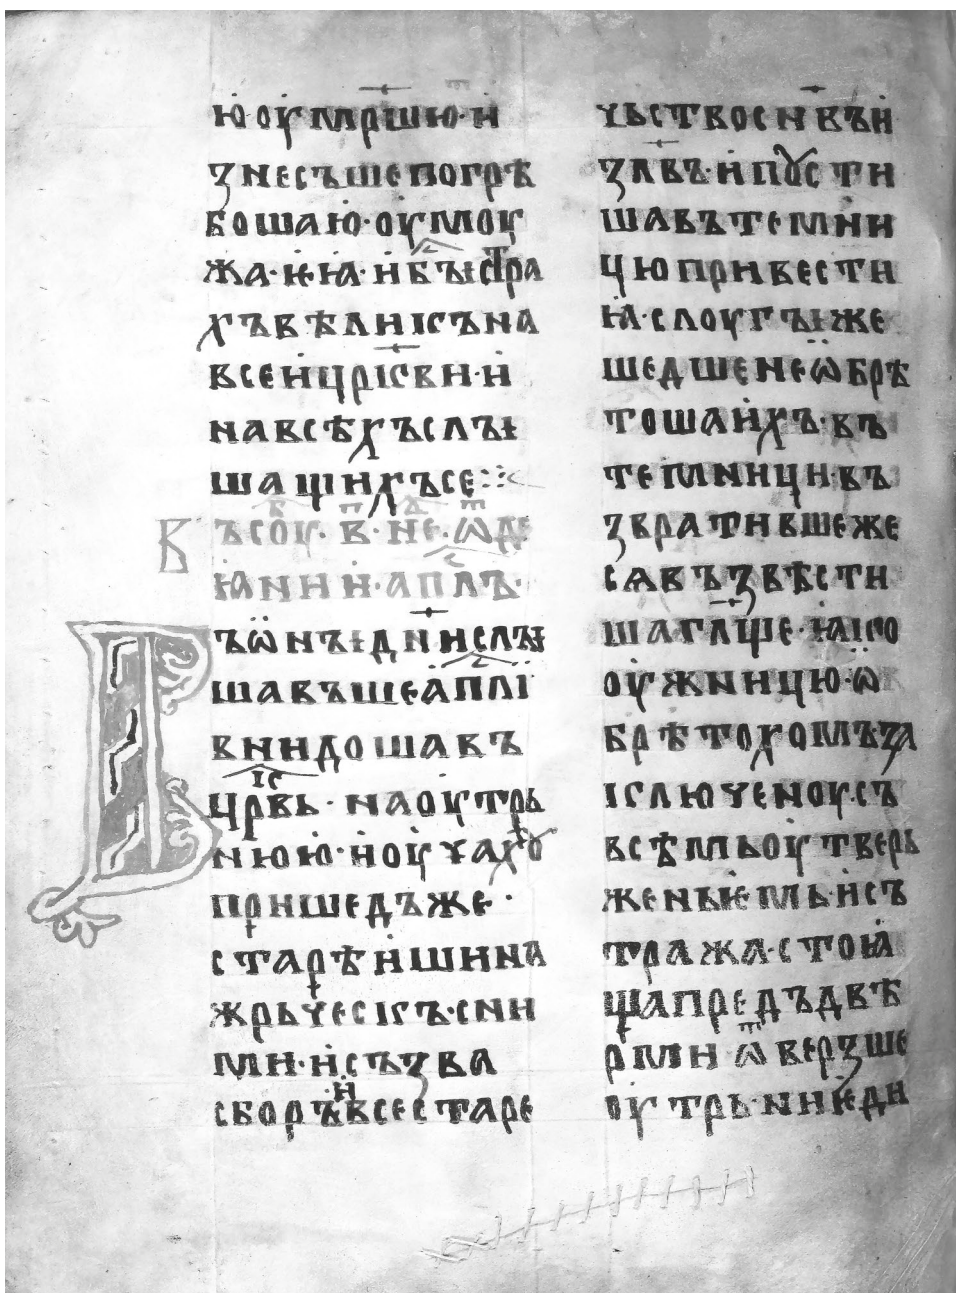 ю оумршю· и
знесъше погрѣ
боша ю· оу моу
жа· ѥ ꙗ· и бꙑ стра
хъ вѣликъ на
всеи црікви· и
на всѣхъ слꙑ
шащихъ се
Въ соу· в҃· не· ѿ дѣ
ꙗнии· апⷭ҇лъ·
Въ ѡнꙑ дни слꙑ
шавъше апⷭ҇лї
внидоша въ
црⷦ҇вь· на оутрь
нюю· и оучахоу
пришедъ же·
старѣишина
жрьческъ· с ни
ми· и съзва
сборъ и все старе
чьство сн҃въ и
зл҃въ· и поусти
ша въ темни
цю привести
ꙗ· слоугꙑ же
шедше не ѡбрѣ
тоша ихъ· въ
темници· въ
звратившеже
сѧ възвѣсти
ша гл҃ще· ꙗко
оу жницю ѡ
брѣтохомъ за
ключеноу· съ
всѣмь оутверь
женьѥмь· и с
тража· стоꙗ
ща предъ двѣ
рми· ѿверзше
оутрь· ни ѥди